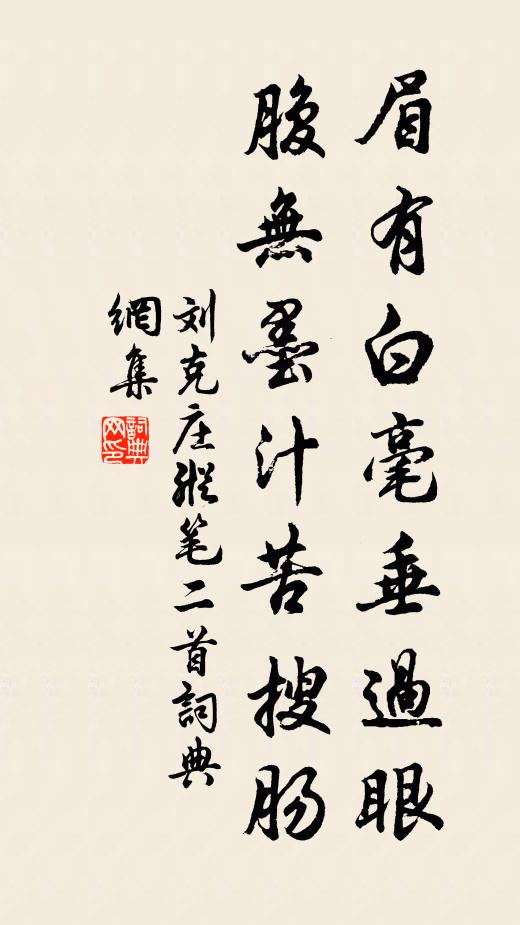 眉有白毫垂過眼
腹無墨汁苦搜肠
刘克庄縱笔二首詞典
網集
詞典
网印